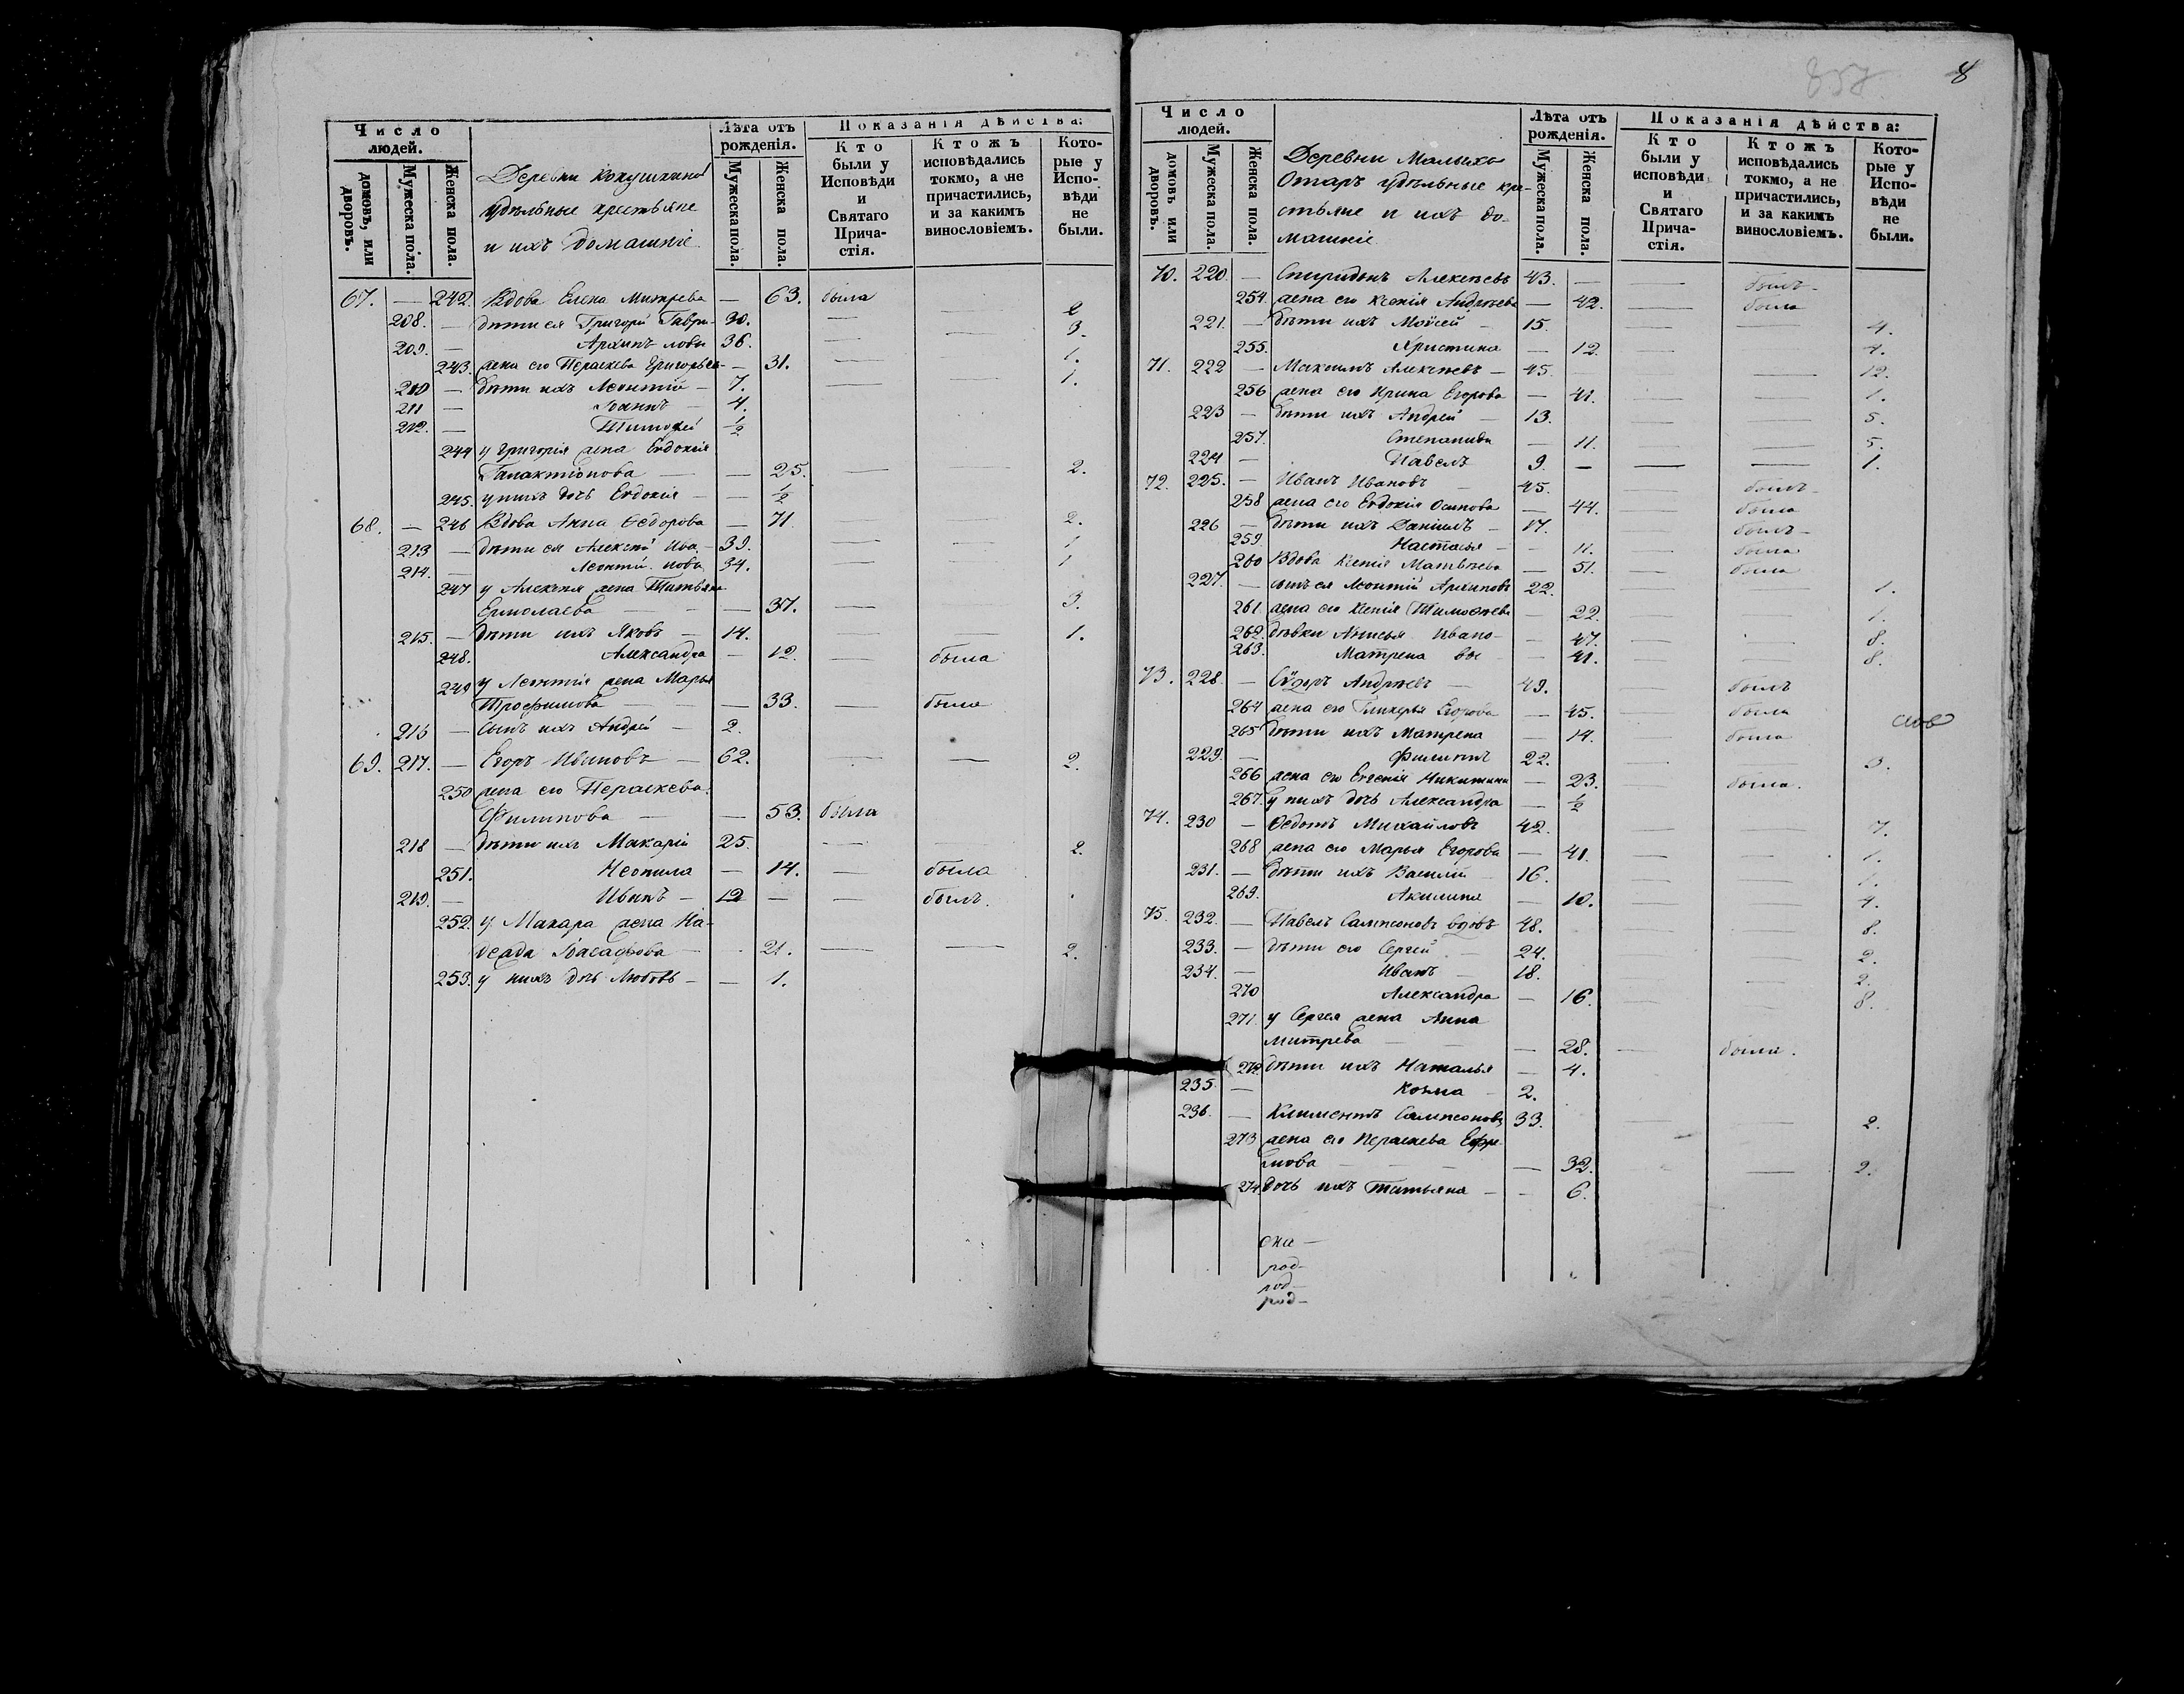 Число людей.
домовъ, или дворовъ.
Мужеска пола.
Женска пола.
Деревни Кокушкиной
удѣльные крестьяне
и ихъ домашніе
Лѣта отъ рожденія.
Мужеска пола.
Женска пола.
Показанія дѣйства:
Кто были у Исповѣди и Святаго Причастія.
Ктожъ исповѣдались токмо, а не причастились, и за какимъ винословіемъ.
Которые у Исповѣди не были.
67. — 242. Вдова Елена Митрева — 63. была
208. — дѣти ея Григорій Гаври- 30. — — 2
209. — Архипъ ловы 36. — — 3.
243. жена его Параскева Григорьева — 31. — — 1.
210 — дѣти ихъ Леонтій — 7. — 1.
211 — Іоаннъ — 4.
212. — Тимофей ½
244 у Григорія жена Евдокія
Галактіонова — — 25. — 2.
245. у нихъ дочь Евдокія — — ½
68. — 246 Вдова Анна Ѳедорова — 71. — — 2.
213 — дѣти ея Алексѣй Ива- 39. — — 1
214. — Леонтій новы 34. — — 1
247 у Алексѣя жена Татьяна
Ермолаева — — 37. — — 3.
215. — дѣти ихъ Яковъ — 14. — — 1.
248. Александра — 12. — была
249 у Леонтія жена Марья
Трофимова — — 33. — была
216 — сынъ ихъ Андрей — 2.
69. 217. — Егоръ Ивановъ — 62. — — 2.
250 жена его Параскева
Филипова — — 53. была
218 — дѣти ихъ Макарій 25. — 2.
251. Неонила — 14. — была
219. — Иванъ — 12 — — былъ.
252. у Макара жена На-
деада Іоасафова — 21. — — 2.
253. у нихъ дочь Любовь — — 1.
857
8
Число людей.
домовъ или дворовъ.
Мужеска пола.
Женска пола.
Деревни Малыхъ
Отаръ удѣльные кре-
стьяне и ихъ до-
машніе
Лѣта отъ рожденія.
Мужеска пола.
Женска пола.
Показанія дѣйства:
Кто были у исповѣди и Святаго Причастія.
Ктожъ исповѣдались токмо, а не причастились, и за какимъ винословіемъ.
Которые у Исповѣди не были.
70. 220 — Спиридонъ Алексѣевъ 43. — — былъ
254. жена его Ксенія Андрѣева — 42. — была
221. — дѣти ихъ Моѵсей — 15. — — 4.
255. Христина — 12. — — 4.
71. 222 — Максимъ Алексѣевъ — 45. — — 12.
256 жена его Ирина Егорова — 41. — — 1.
223 — дѣти ихъ Андрей — 13. — — 5.
257. Степанида — 11. — — 5.
224 — Павелъ 9. — — — 1.
72. 225. — Иванъ Ивановъ — 45. — былъ
258 жена его Евдокія Осипова — 44. — была
226 — дѣти ихъ Даніилъ — 17. — былъ
259. Настасья — — 11. — была
260 Вдова Ксенія Матвѣева — 51. — была
227. — сынъ ея Леонтій Архиповъ 22. — — 1.
261. жена его Ксенія Тимоѳеева — 22. — — 1.
262. дѣвки Анисья Ивано- — 47. — 8.
263. Матрена вы — 41. — — 8.
73. 228. — Сѵдоръ Андрѣевъ — 49. — былъ
264 жена его Гликерья Егорова — 45. — была
265 дѣти ихъ Матрена — 14. — была
229. — Филиппъ 22. — — 3.
266 жена его Евгенія Никитина — 23. — была.
267. у нихъ дочь Александра — ½
74. 230 — Ѳедотъ Михайловъ 42. — — 7.
268 жена его Марья Егорова — 41. — — 1.
231. — дѣти ихъ Василій — 16. — — 1.
269. Акилина — 10. — — 4.
75. 232. — Павелъ Сампсоновъ вдовъ 48. — — 8.
233. — дѣти его Сергей — 24. — — 2.
234. — Иванъ — 18. — — 2.
270 Александра — 16. — — 8.
271. у Сергея жена Анна
Митрева — — 28. — была.
272. дѣти ихъ Наталья — 4.
235. — Козма — 2.
236. — Климентъ Сампсоновъ 33. — — 2.
273 жена его Параскева Ефре-
мова — — 32. — — 2.
274 дочь ихъ Татьяна — — 6.
род-
род-
род-